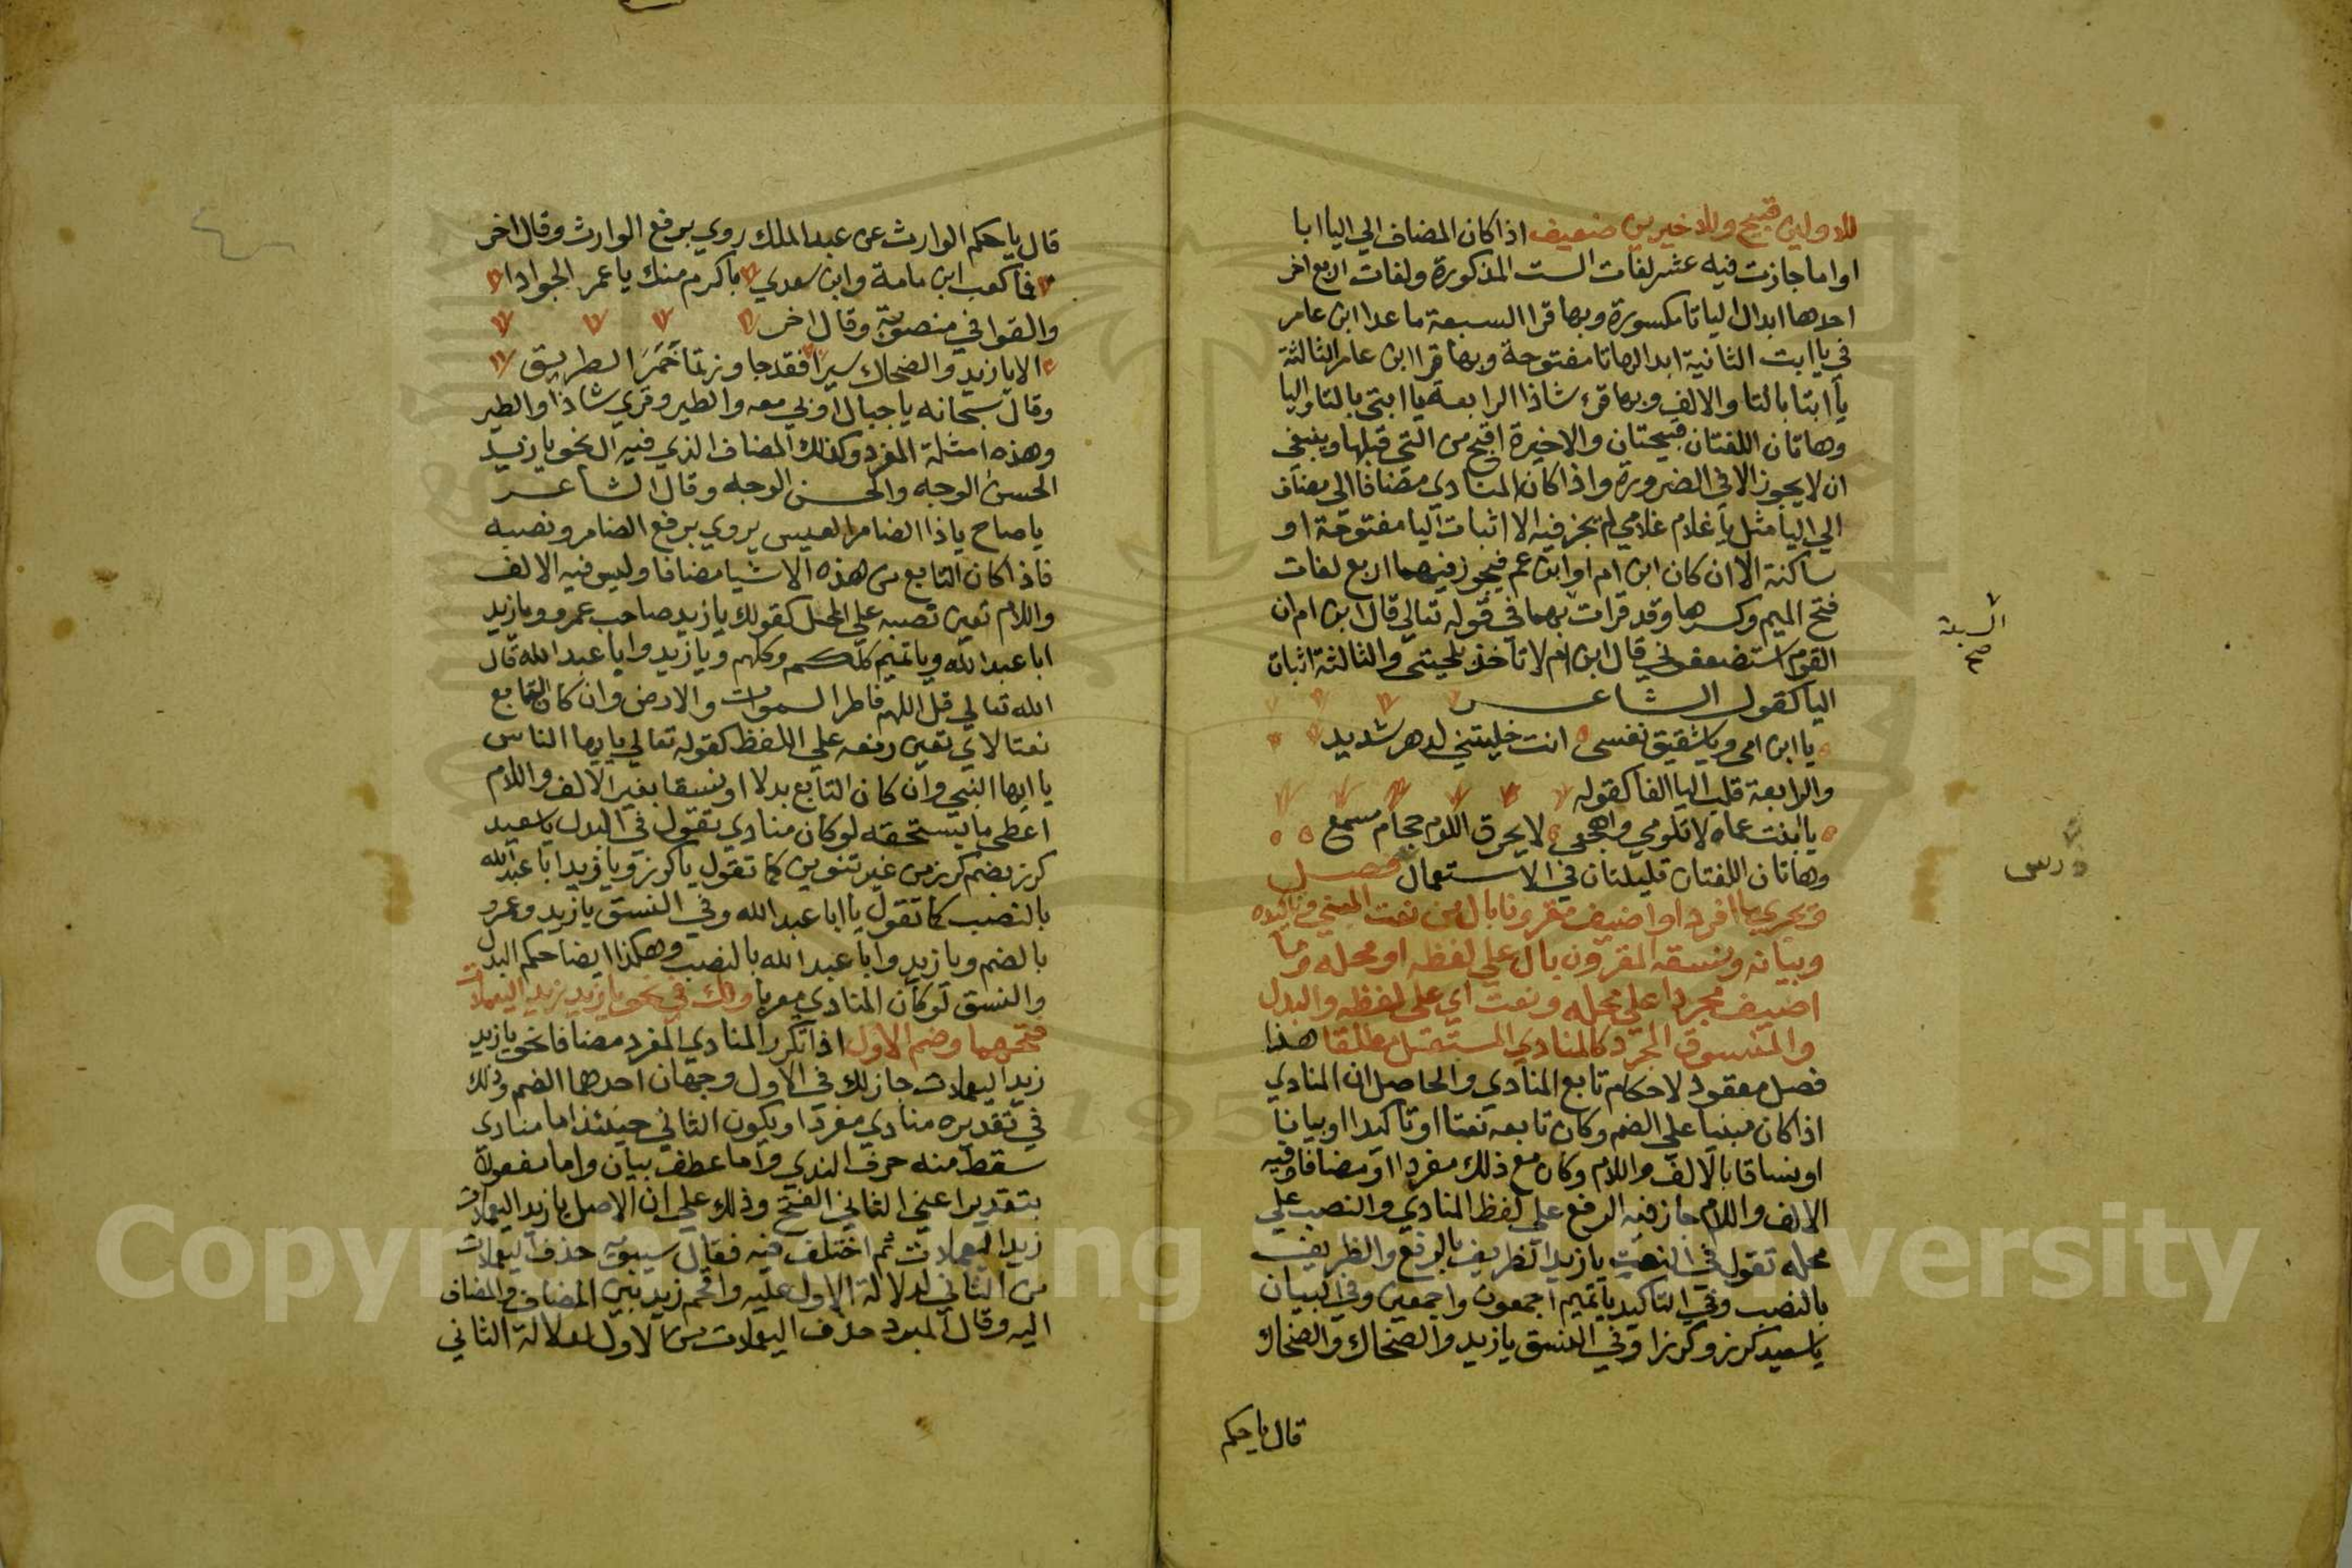 للاولين قبيح وللاخيرين ضعيف اذا كان المضاف الي اليا ابا
او اما جازت فيه عشر لغات الست المذكورة ولغات اربع اخر
احدها ابدال اليا تا مكسورة وبها قرا السبعة ما عدا ابن عامر
في يا ابت الثانية ابدالها تا مفتوحة وبها قرا ابن عامر الثالثة
يا ابتا بالتا والالف وبها قرء شاذا الرابعة يا ابتي بالتا واليا
وهاتان اللغتان قبيحتان والاخيرة اقبح من التي قبلها وينبغي
ان لا يجوز الا في الضرورة واذا كان المنادي مضافا الي مضاف
الي اليا مثل يا غلام غلامي لم يجز فيه الا اثبات اليا مفتوحة او
ساكنة الا ان كان ابن ام او ابن عم فيجوز فيهما اربع لغات
فتح الميم وكسرها وقد قرات بهما في قوله تعالي قال ابن ام ان
القوم استضعفوني قال ابن ام لا تاخذ بلحيتي والثالثة اثبات
اليا كقول الشاعر
يا ابن امي ويا شقيق نفسي انت خليتني لدهر شديد
والرابعة قلب اليا الفا كقوله
يا ابنت عماه لا تلومي واهجعي لا يحرق اللوم حجام مسمع
وهاتان اللغتان قليلتان في الاستعمال فصل
ويجري ما افرد او اضيف مقرونا بال من نعت المبني وتاكيده
وبيانه ونسقه المقرون بال علي لفظه او محله وما
اضيف مجردا علي محله ونعت اي علي لفظه والبدل
والمنسوق المجرد كالمنادي المستقبل مطلقا هذا
فصل معقود لاحكام تابع المنادي والحاصل ان المنادي
اذا كان مبنيا علي الضم وكان تابعه نعتا او تاكيدا او بيانا
او نساقا بالالف واللام وكان مع ذلك مفردا او مضافا وفيه
الالف واللام جاز فيه الرفع علي لفظ المنادي والنصب علي
محله تقول في النعت يا زيد الظريف بالرفع والظريف
بالنصب وفي التاكيد يا تميم اجمعون واجمعين وفي البيان
يا سعيد كرز وكرزا وفي النسق يا زيد والضحاك والضحاك
قال يا حكم
السبعة
صح
درس
قال يا حكم الوارث عن عبد الملك روي برفع الوارث وقال اخر
فما كعب ابن مامة وابن سعدي باكرم منك يا عمر الجوادا
والقوافي منصوبة وقال اخر
الا يا زيد والضحاك سيرا فقد جاوزتما خمر الطريق
وقال سبحانه يا جبال اوبي معه والطير وقري شاذا والطير
وهذه امثلة المفرد وكذلك المضاف الذي فيه ال نحو يا زيد
الحسن الوجه والحسن الوجه وقال الشاعر
يا صاح يا ذا الضامر العيس يروي برفع الضامر ونصبه
فاذا كان التابع من هذه الاشيا مضافا وليس فيه الالف
واللام تعين نصبه علي المحل كقولك يا زيد صاحب عمرو ويا زيد
ابا عبد الله ويا تميم كلكم وكلهم ويا زيد وابا عبد الله قال
الله تعالي قل اللهم فاطر السموات والارض وان كان التابع
نعتا لاي تعين رفعه علي اللفظ كقوله تعالي يا ايها الناس
يا ايها النبي وان كان التابع بدلا او نسقا بغير الالف واللام
اعطي ما يستحقه لو كان منادي تقول في البدل يا سعيد
كرز بضم كرز من غير تنوين كما تقول يا كرز ويا زيد ابا عبد الله
بالنصب كما تقول يا ابا عبد الله وفي النسق يا زيد وعمرو
بالضم ويا زيد وابا عبد الله بالنصب وهكذا ايضا حكم البدل
والنسق لو كان المنادي معربا ولك في نحو يا زيد زيد اليعملات
فتحهما وضم الاول اذا تكرر المنادي المفرد مضافا نحو يا زيد
زيد اليعملات جاز لك في الاول وجهان احدهما الضم وذلك
في تقديره منادي مفردا ويكون الثاني حينئذ اما منادي
سقط منه حرف الندي واما عطف بيان واما مفعولا
بتقدير اعني الثاني الفتح وذلك علي ان الاصل يا زيد اليعملات
زيد اليعملات ثم اختلف فيه فقال سيبويه حذف اليعملات
من الثاني لدلالة الاول عليه واقحم زيد بين المضاف والمضاف
اليه وقال المبرد حذف اليعملات من الاول لدلالة الثاني